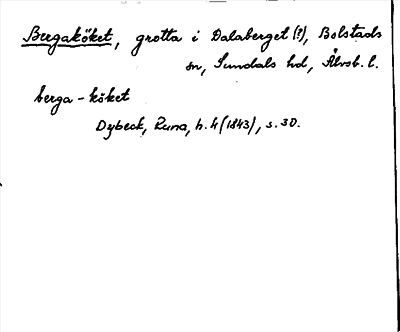 Bergaköket, grotta i Dalaberget (?), Bolstads
sn, Sundals hd, Älvsb. l.
berga-köket
Dybeck, Runa, h. 4 (1843), s. 30.